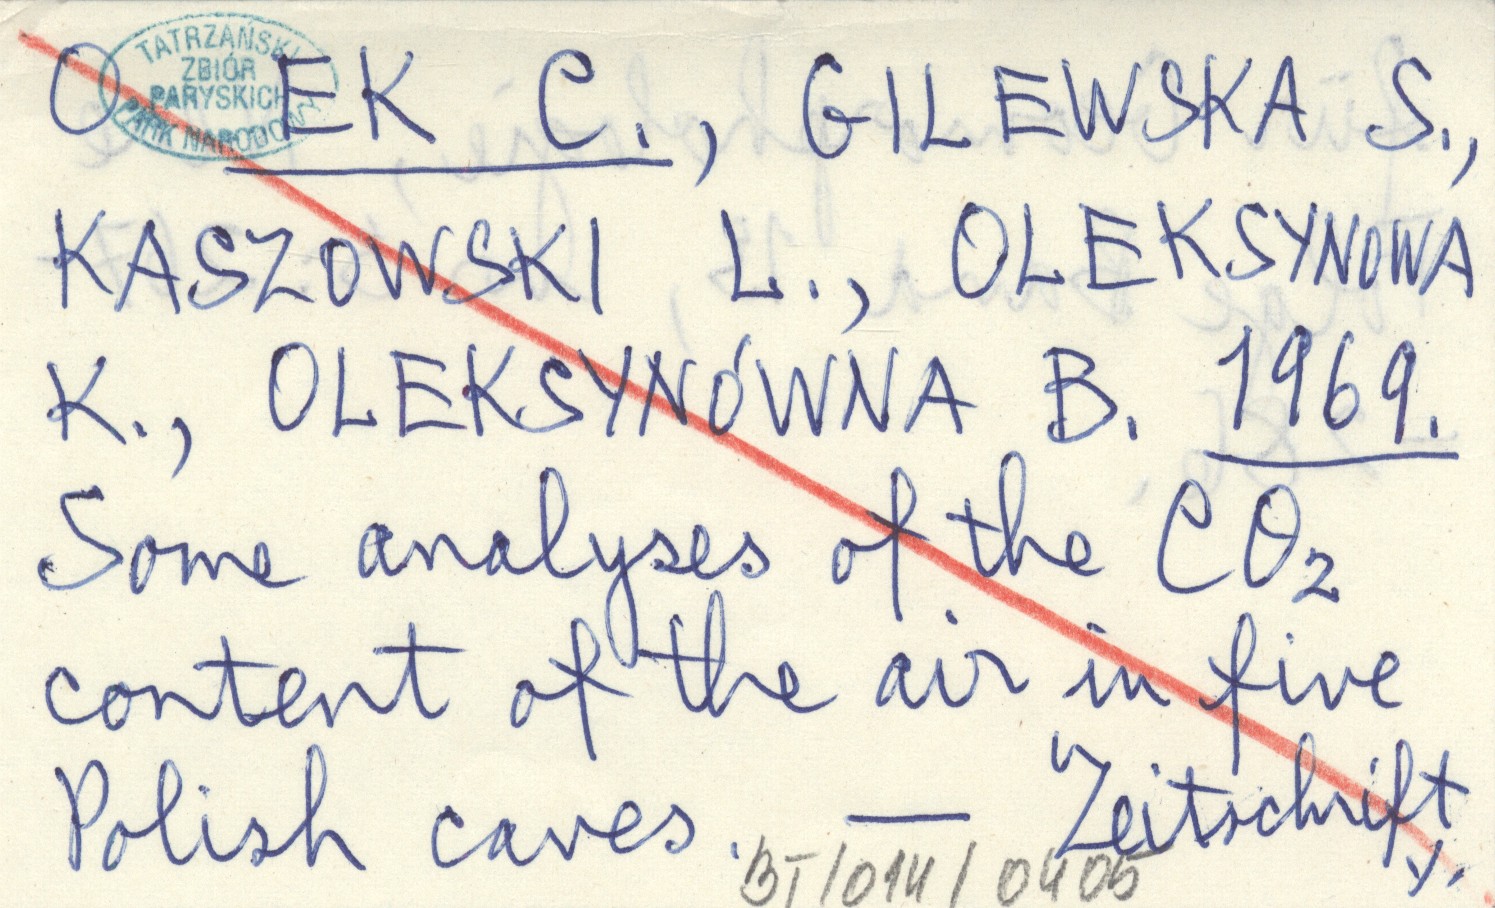 TATRZAŃSKI
ZBIÓR
PARYSKICH
PARK NARODOWY
O EK C., GILEWSKA S.,
KASZOWSKI L., OLEKSYNOWA
K., OLEKSYNÓWNA B. 1969.
Some analyses of the CO₂
content of the air in five
Polish caves. — Zeitschrift
BT/014/0405